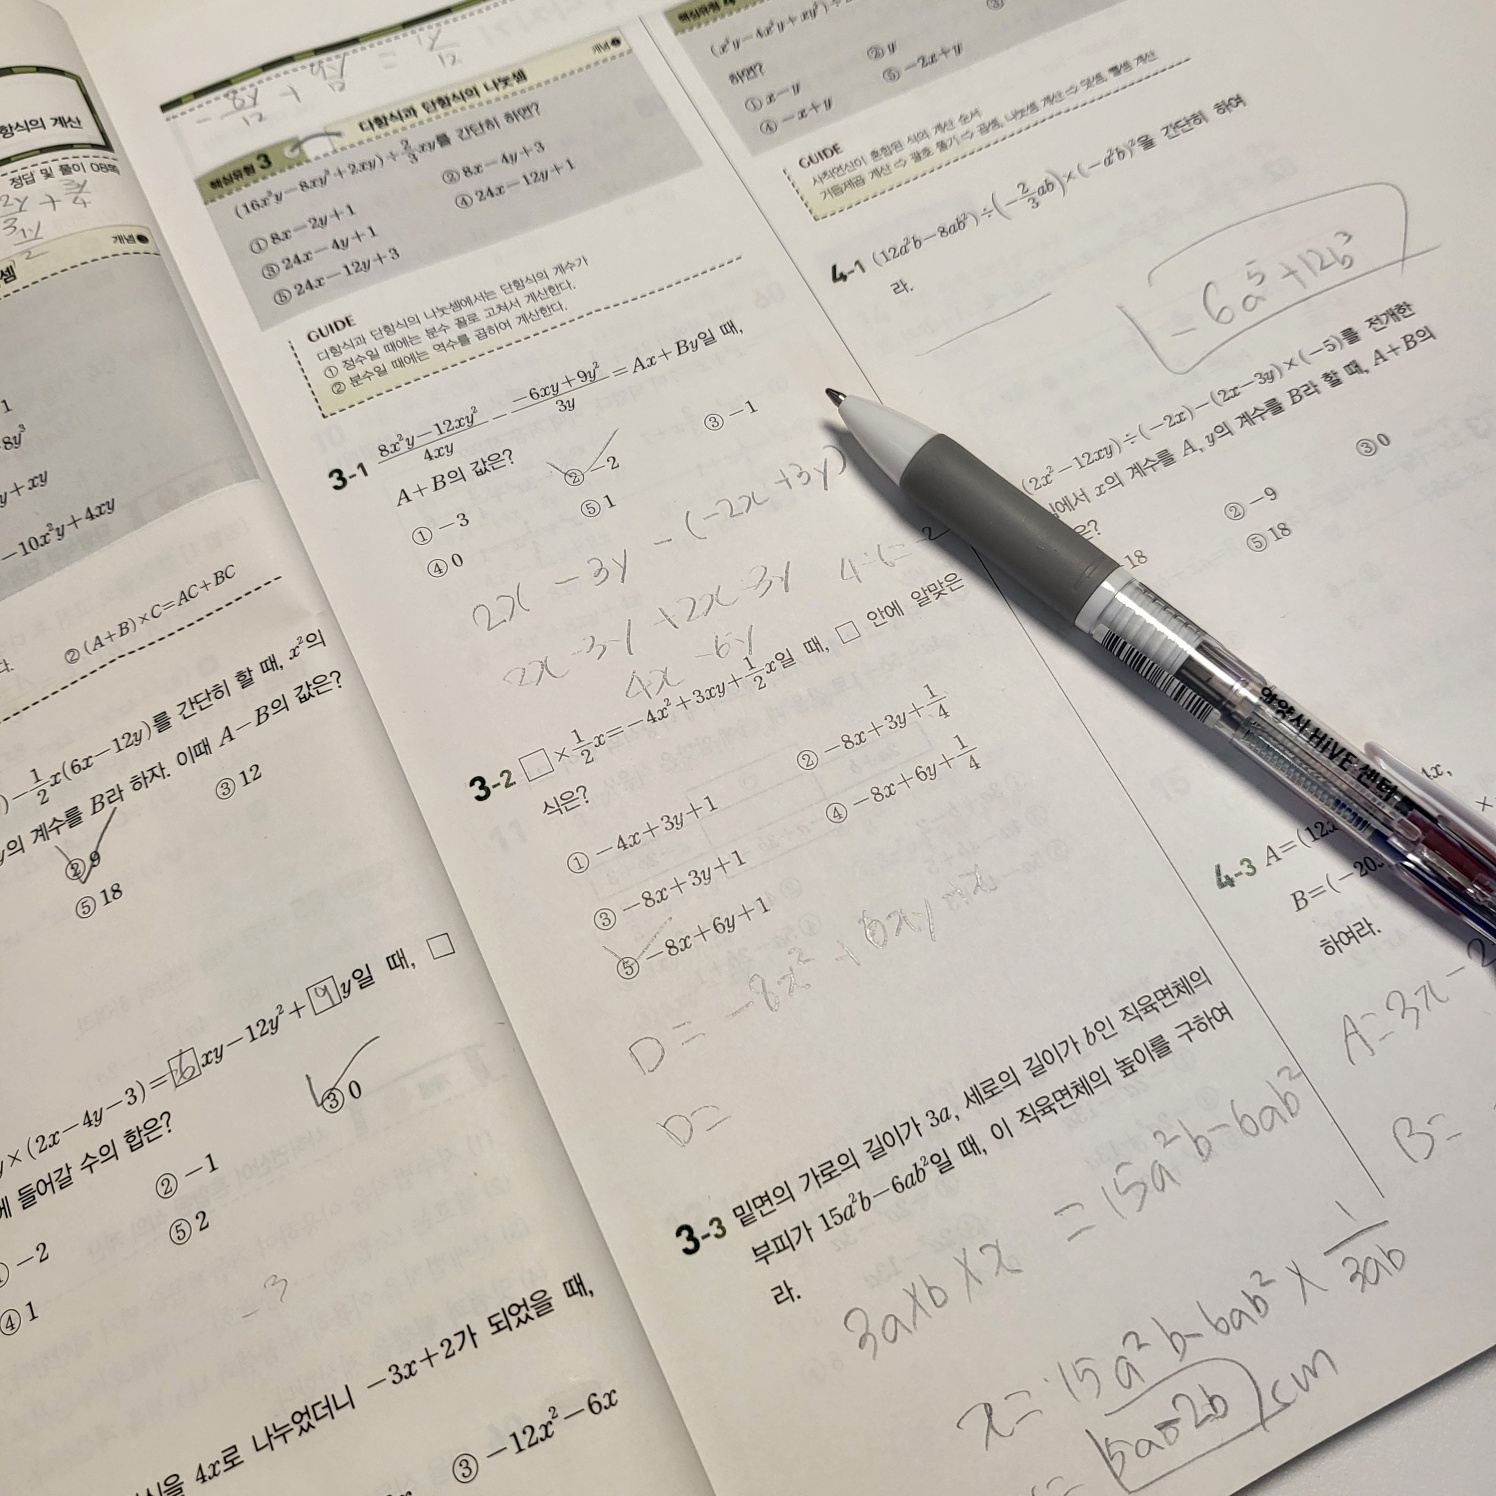 항식의 계산
정답 및 풀이 08쪽
개념
1
8y³
y+xy
-10x²y+4xy
②(A+B)×C=AC+BC
-1/2x(6x-12y)를 간단히 할 때, x²의
y의 계수를 B라 하자. 이때 A-B의 값은?
② 9
③ 12
⑤ 18
×(2x-4y-3)=6xy-12y²+9y일 때, □
에 들어갈 수의 합은?
② -1
③ 0
-2
④ 1
⑤ 2
-3
4x로 나누었더니 -3x+2가 되었을 때,
③ -12x²-6x
-8y/12 +
핵심유형 3
다항식과 단항식의 나눗셈
(16x²y-8xy²+2xy)÷2/3xy를 간단히 하면?
① 8x-2y+1
② 8x-4y+3
③ 24x-4y+1
④ 24x-12y+1
⑤ 24x-12y+3
GUIDE
다항식과 단항식의 나눗셈에서는 단항식의 계수가
① 정수일 때에는 분수 꼴로 고쳐서 계산한다.
② 분수일 때에는 역수를 곱하여 계산한다.
3-1 (8x²y-12xy²)/4xy - (-6xy+9y²)/3y =Ax+By일 때,
A+B의 값은?
① -3
② -2
③ -1
④ 0
⑤ 1
2x -3y -(-2x+3y)
2x-3y+2x-3y
4x-6y
3-2 □×1/2x=-4x²+3xy+1/2x일 때, □ 안에 알맞은
식은?
① -4x+3y+1
② -8x+3y+1/4
③ -8x+3y+1
④ -8x+6y+1/4
⑤ -8x+6y+1
3-3 밑면의 가로의 길이가 3a, 세로의 길이가 b인 직육면체의
부피가 15a²b-6ab²일 때, 이 직육면체의 높이를 구하여
라.
3a×b×x =15a²b-6ab²
x=15a²b-6ab²×1/3ab
5a-2b cm
핵심유형 4
하면?
① x-y
② y
④ -x+y
⑤ -2x+y
GUIDE
사칙연산이 혼합된 식의 계산 순서
거듭제곱 계산 ⇨ 괄호 풀기 ⇨ 곱셈, 나눗셈 계산 ⇨ 덧셈, 뺄셈 계산
4-1 (12a²b-8ab²)÷(-2/3ab)×(-a²b)²을 간단히 하여
라.
(2x²-12xy)÷(-2x)-(2x-3y)×(-5)를 전개한
식에서 x의 계수를 A, y의 계수를 B라 할 때, A+B의
② -9
③ 0
18
⑤ 18
안양시 HIVE 센터
4-3 A=(12x
B=(-20
하여라.
A=3x-2
B=